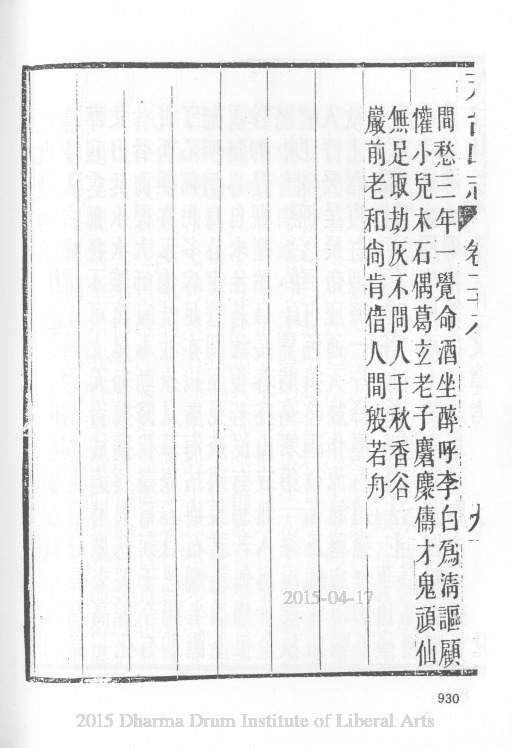 天台山志 卷二十八 九
間愁三年一覺命酒坐醉呼李白爲淸謳顧
懽小兒木石偶葛玄老子麏麇儔才鬼頑仙
無足取劫灰不問人千秋香谷
巖前老和尙肯借人間般若舟
2015-04-17
930
2015 Dharma Drum Institute of Liberal Arts